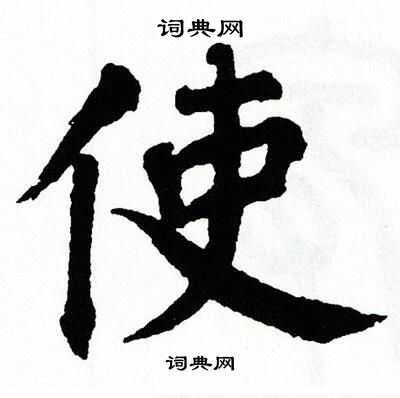 词典网
使
词典网